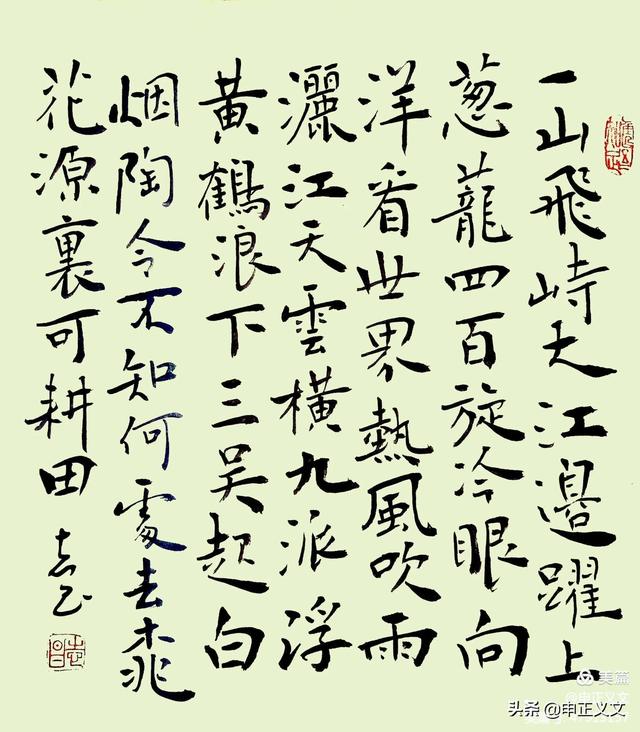 一山飛峙大江邊躍上
葱蘢四百旋冷眼向
洋看世界熱風吹雨
灑江天雲橫九派浮
黃鶴浪下三吳起白
烟陶令不知何處去桃
花源裏可耕田
美篇
@申正义文
头条 @申正义文